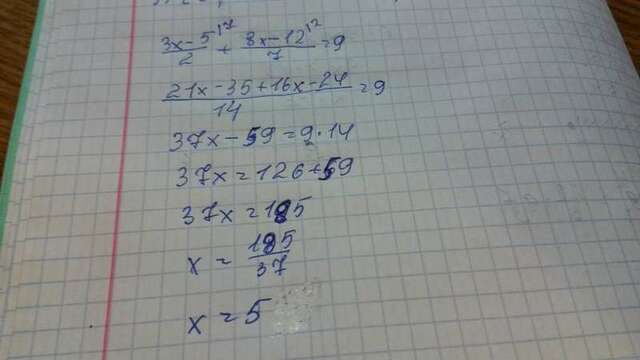 (3x-5)/2 |7 + (8x-12)/7 |2 = 9
(21x-35+16x-24)/14 = 9
37x-59=9·14
37x=126+59
37x=185
x = 185/37
x = 5